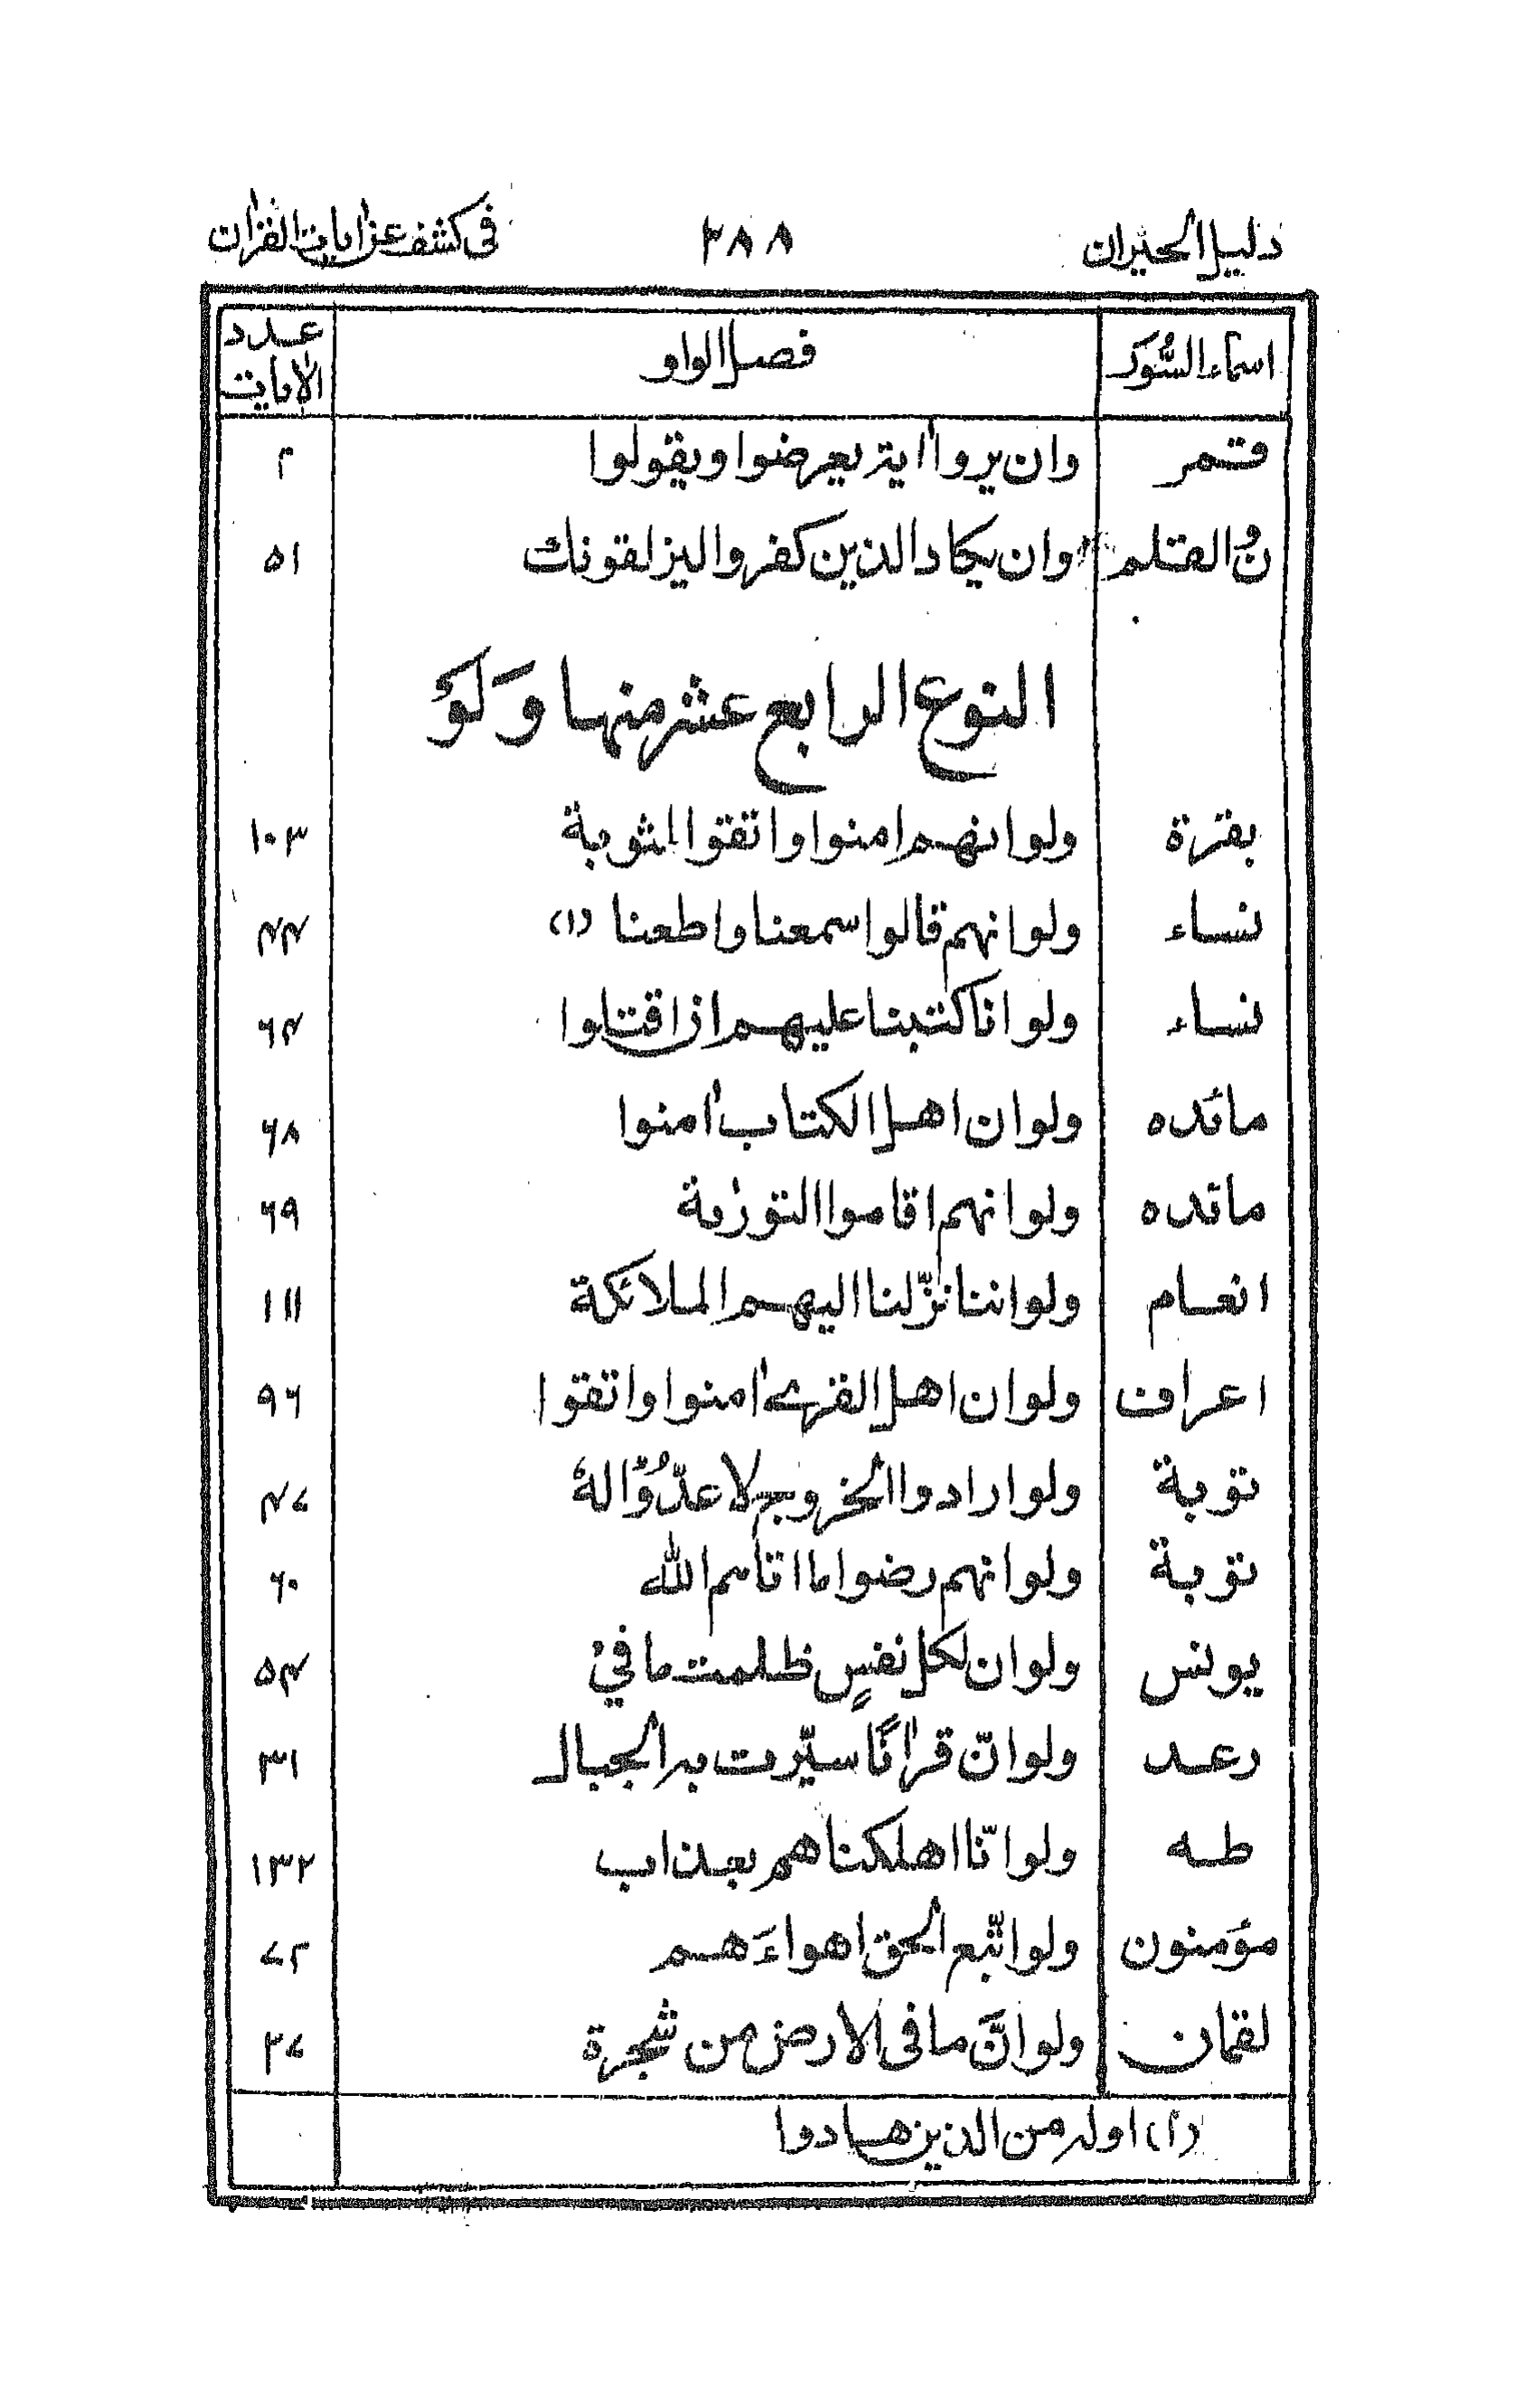 دليل الحيران ٣٨٨ فى كشف عن ايات القران
اسماء السور فصل الواو عدد الايات
قمر وان يروا اٰية يعرضوا ويقولوا ٢
ن والقلم وان يكاد الذين كفروا ليزلقونك ٥١
النوع الرابع عشر منها وَلَوْ
بقرة ولو انهم امنوا واتقوا المثوبة ١٠٣
نساء ولو انهم قالوا سمعنا واطعنا (١) ۴۴
نساء ولو انا كتبنا عليهم ان اقتلوا ۶۴
مائده ولو ان اهل الكتاب اٰمنوا ۶٨
مائده ولو انهم اقاموا التورٰية ۶٩
انعام ولو اننا نزّلنا اليهم الملائكة ١١١
اعراف ولو ان اهل القرےٰ اٰمنوا واتقوا ٩۶
توبة ولو ارادوا الخروج لاعدُّوْا لهٗ ۴٧
توبة ولو انهم رضوا ما اتاهم الله ۶٠
يونس ولو ان لكل نفسٍ ظلمت ما فى ٥۴
رعد ولو انّ قراٰنًا سيّرت به الجبال ٣١
طه ولو انّا اهلكناهم بعذاب ١٣٢
مؤمنون ولو اتّبع الحق اهواءَهم ٧٢
لقمان ولو انَّ ما فى الارض من شجرة ٢٧
(١) اوله من الذين هادوا